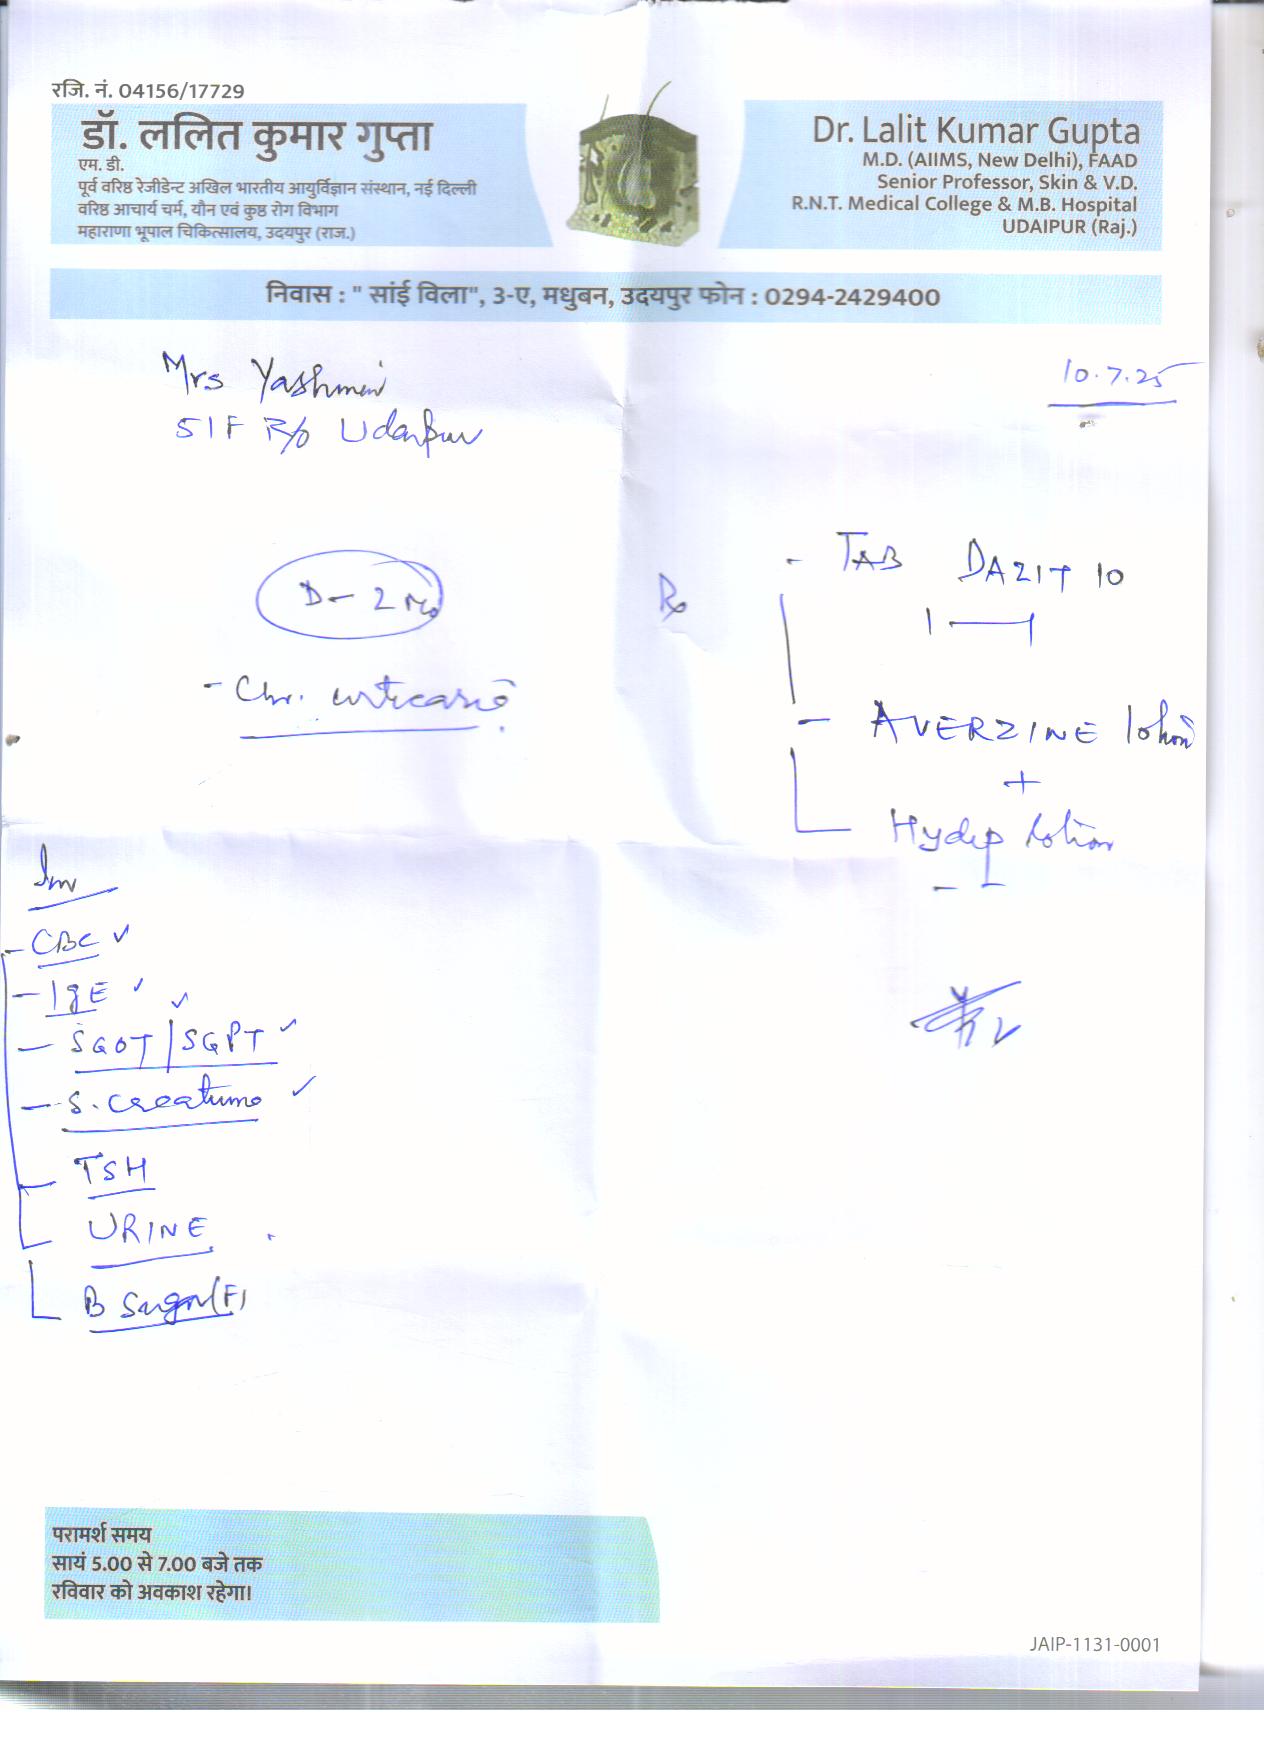 रजि. नं. 04156/17729
डॉ. ललित कुमार गुप्ता
एम. डी.
पूर्व वरिष्ठ रेजीडेन्ट अखिल भारतीय आयुर्विज्ञान संस्थान, नई दिल्ली
वरिष्ठ आचार्य चर्म, यौन एवं कुष्ठ रोग विभाग
महाराणा भूपाल चिकित्सालय, उदयपुर (राज.)
Dr. Lalit Kumar Gupta
M.D. (AIIMS, New Delhi), FAAD
Senior Professor, Skin & V.D.
R.N.T. Medical College & M.B. Hospital
UDAIPUR (Raj.)
निवास : " सांई विला", ३-ए, मधुबन, उदयपुर फोन : 0294-2429400
Mrs Yashmin
10.7.25
51F R/o Udaipur
D - 2 Mo
- Chr. urticaria
Rx
- TAB DAZIT 10
1
- AVERZINE lotion
+
Hydep lotion
Inv
- CBC ✓
- IgE ✓
- SGOT / SGPT ✓
- S. creatinine ✓
TSH
URINE
B Sugar (F)
परामर्श समय
सायं 5.00 से 7.00 बजे तक
रविवार को अवकाश रहेगा।
JAIP-1131-0001